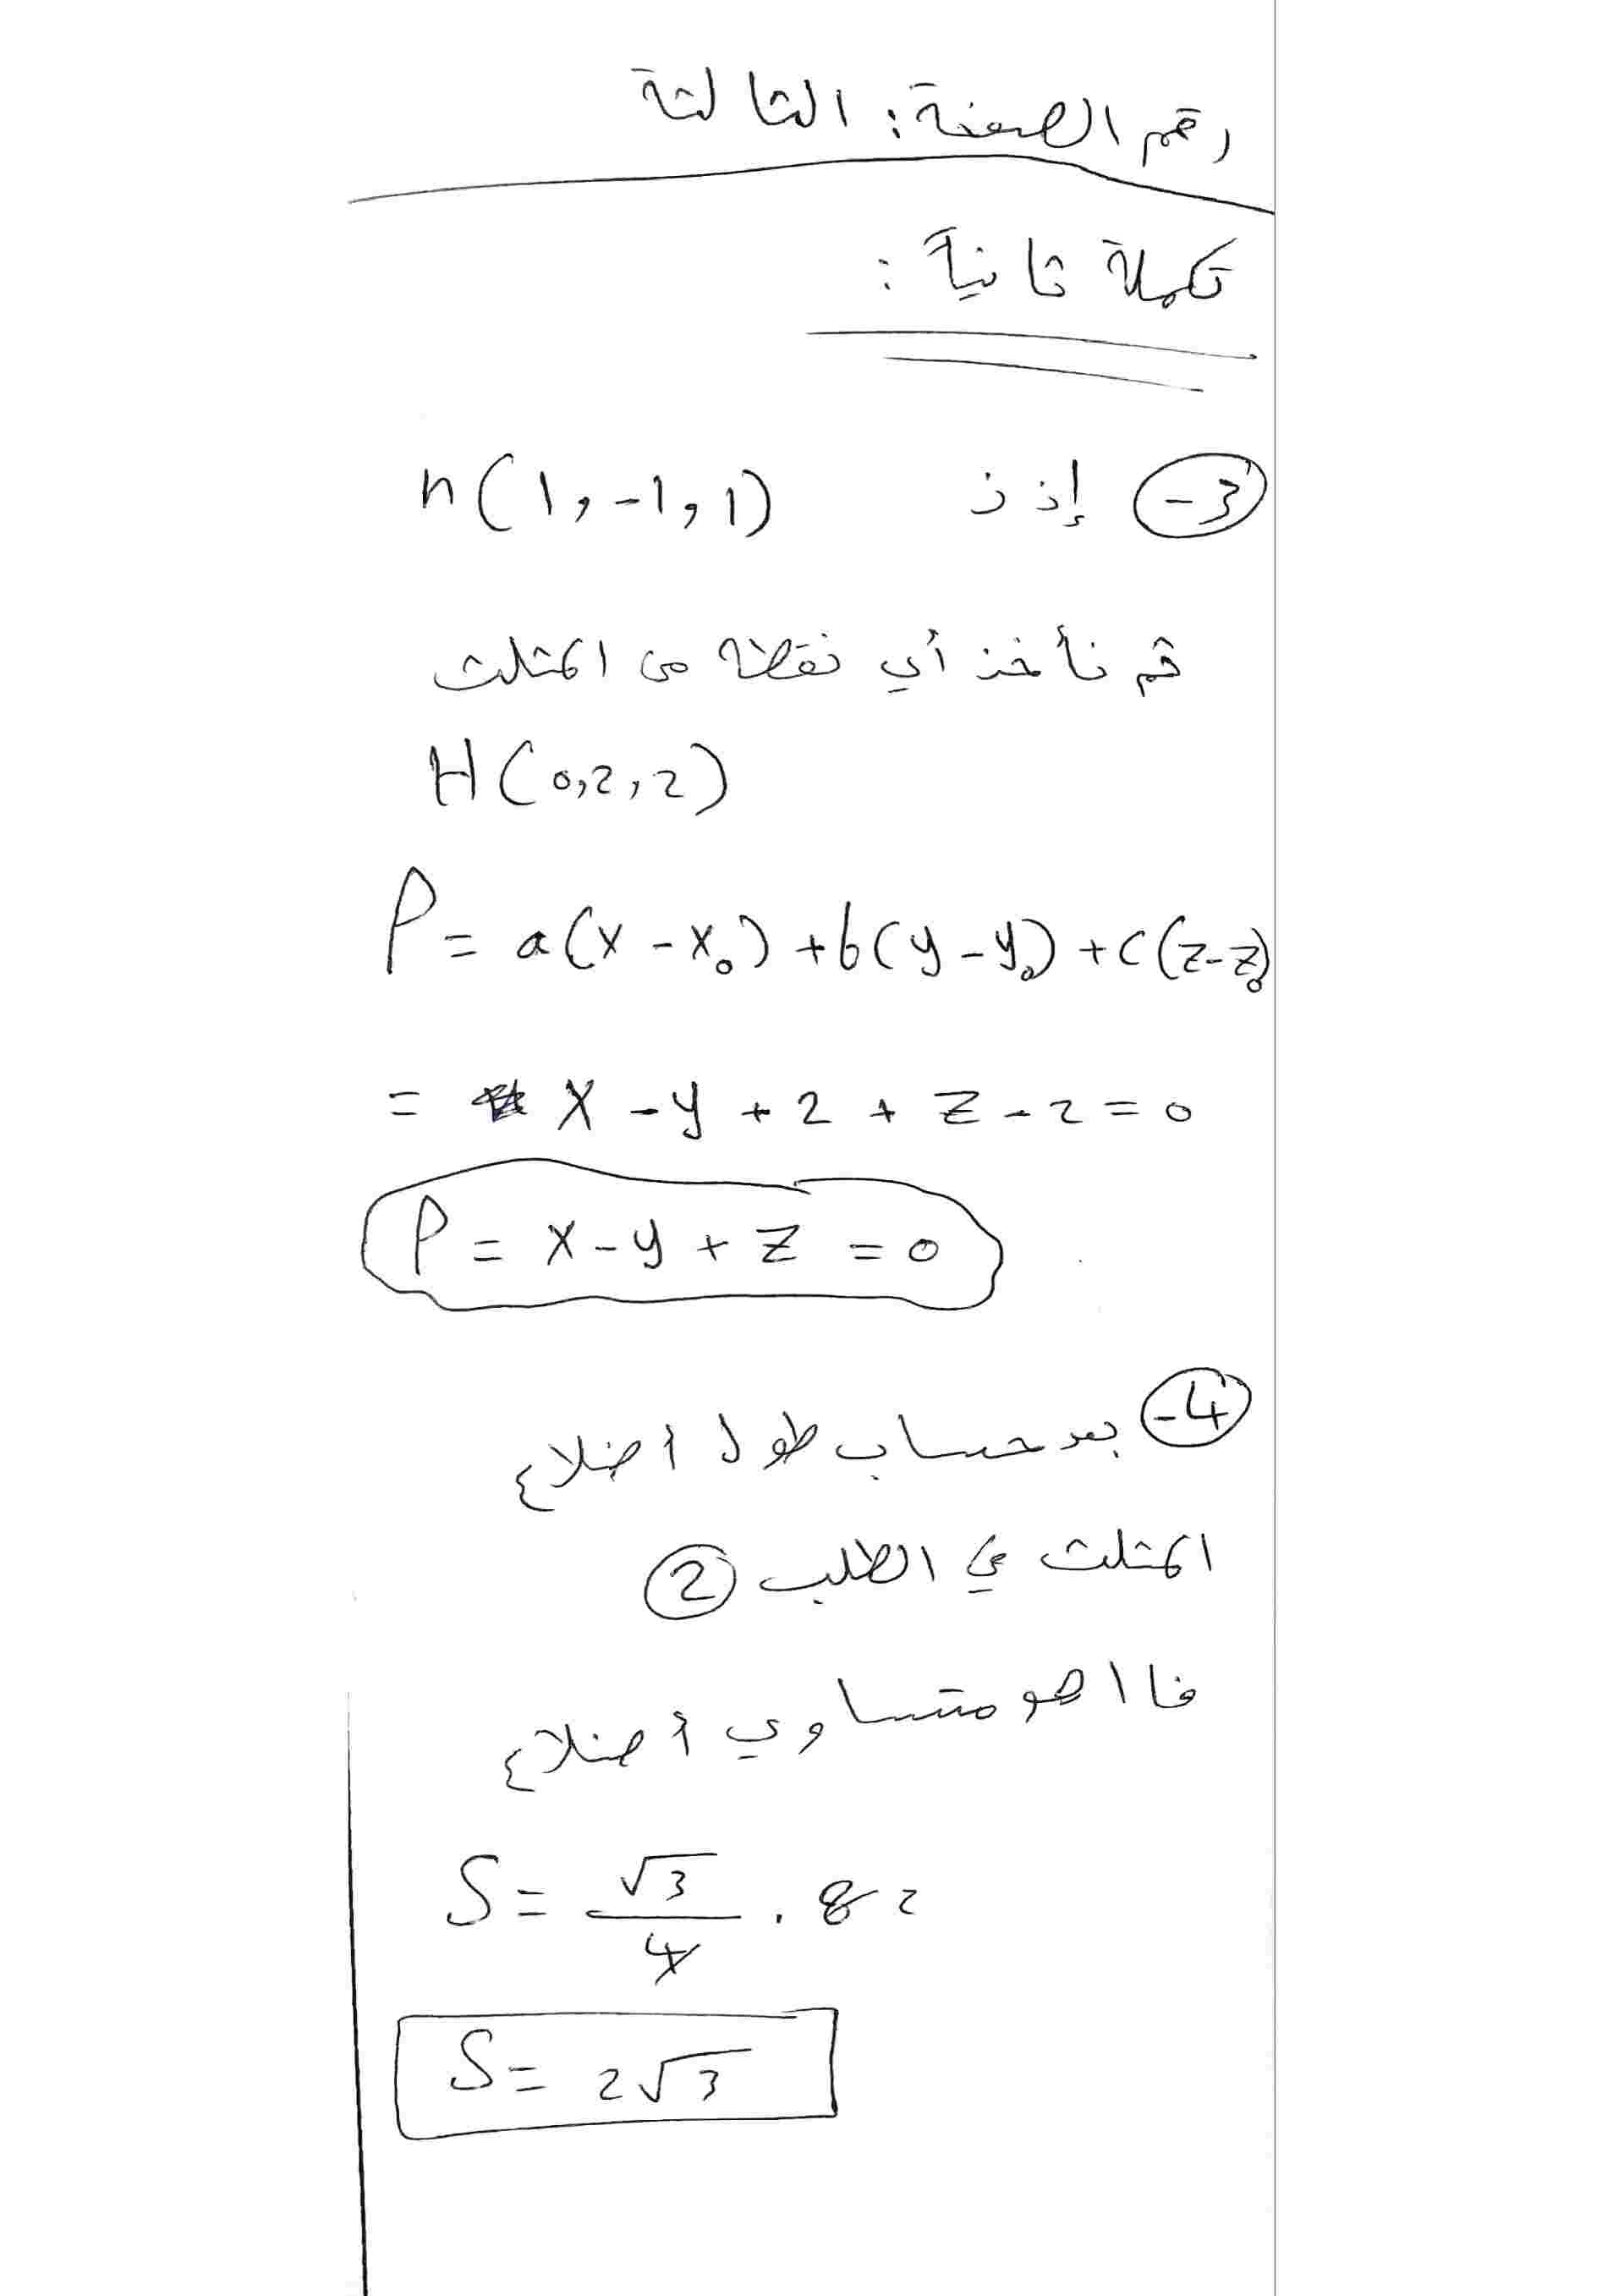 رقم الصفحة: الثالثة
تكملة ثانياً:
3- إذن n(1,-1,1)
ثم نأخذ أي نقطة من المثلث
H(0,2,2)
P = a(x-x₀) + b(y-y₀) + c(z-z₀)
= x - y + 2 + z - 2 = 0
P = x - y + z = 0
4- بعد حساب طول أضلاع
المثلث في الطلب 2
فا هو متساوي أضلاع
S = √3/4 . 8 =
S = 2√3